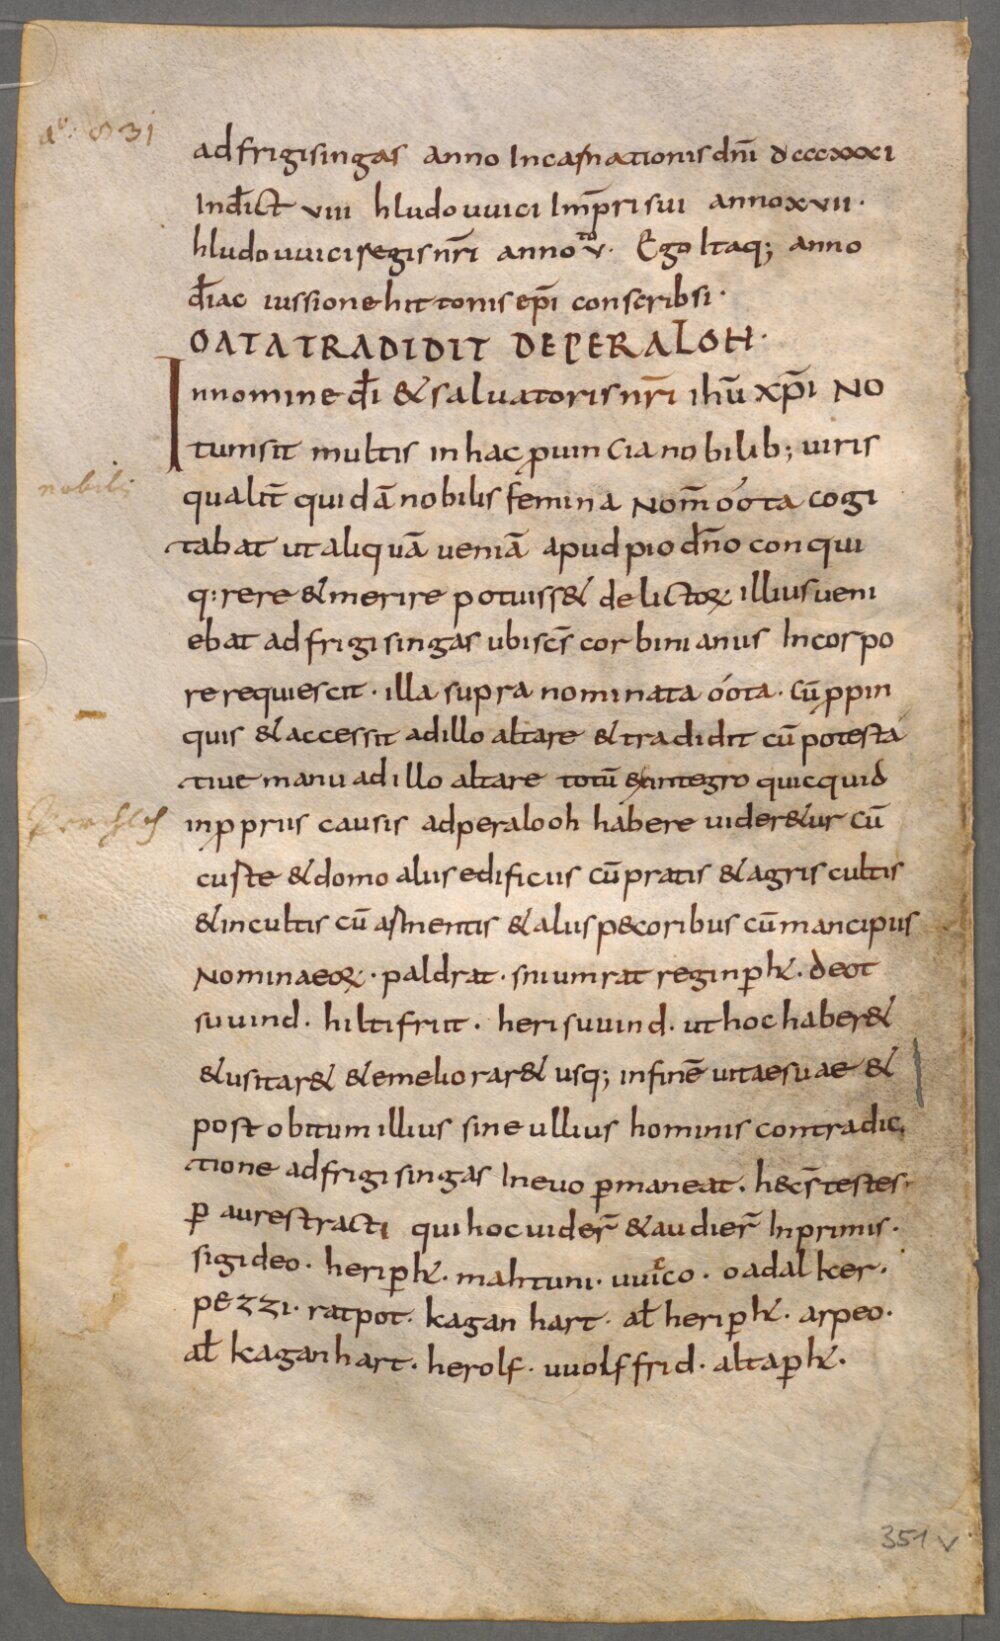 aº. 831
ad frigisingas anno Incarnationis dn̄i dcccxxxi
Indict̄ viii hludouuici Imp̄ri sui anno xvii.
hludouuici regis nr̄i anno vto. Ego Itaq; anno
diac̄ iussione hittonis ep̄i conscribsi.
OATA TRADIDIT DE PERALOH.
In nomine dī & saluatoris nr̄i ihū xp̄i No
tum sit multis in hac ꝓuincia nobilib; uiris
nobilis
qualit̄ quidā nobilis femina Nom̄ óóta cogi
tabat ut aliquā ueniā apud pio dn̄o conqui
q:rere & merire potuiss& delictoꝝ illius ueni
ebat ad frigisingas ubi sc̄s corbinianus In corpo
re requiescit. illa supra nominata óóta. cū ꝓpin
quis & accessit ad illo altare & tradidit cū potesta
tiue manu ad illo altare totū & integro quicquid
Perchloh
in ꝓpriis causis ad peralooh habere uider&ur cū
curte & domo aliis edificiis cū pratis & agris cultis
& incultis cū armentis & aliis pecoribus cū mancipiis
Nomina eoꝝ. paldrat. sniumrat reginꝑh̄t. deot
suuind. hiltifrit. herisuuind. ut hoc haber&
& usitar& & emeliorar& usq; in finē uitae suae &
post obitum illius sine ullius hominis contradic
tione ad frigisingas In euo ꝑmaneat. hec s̄ testes.
ꝑ aures tracti qui hoc uider̄ & audier̄ In primis.
sigideo. heriꝑh̄t. mahtuni. uuieco. oadalker.
pezzi. ratpot. kaganhart. al̄ heriꝑh̄t. arpeo.
al̄ kaganhart. herolf. uuolffrid. altaꝑh̄t.
351 v